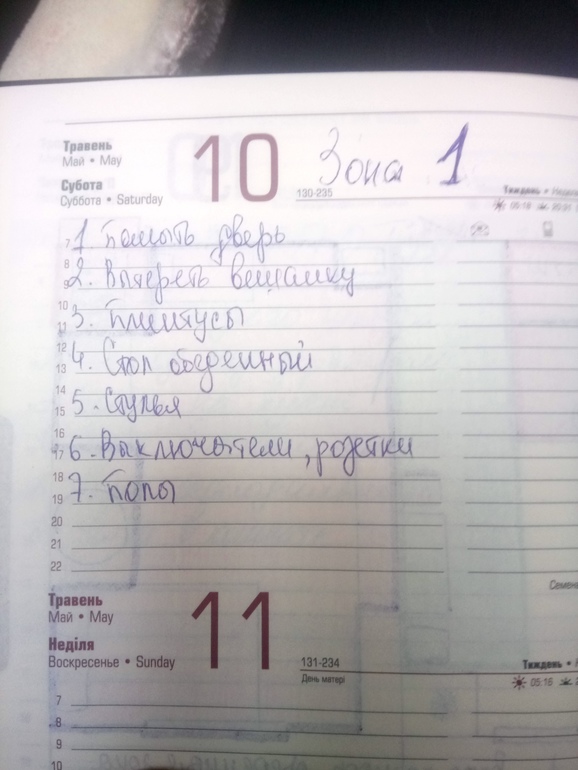 Травень
Май • May
10
Зона 1
Субота
Суббота • Saturday
130-235
Тиждень • Неделя
05:18
20:31
7 1 Помыть дверь
8
9 2. Вытереть вешалку
10
11 3. Плинтусы
12
13 4. Стол обеденный
14
15 5. Стулья
16
17 6. Выключатели, розетки
18
19 7. Полы
20
21
22
Травень
Май • May
11
Неділя
Воскресенье • Sunday
131-234
День матері
Тиждень •
05:16
7
8
9
10